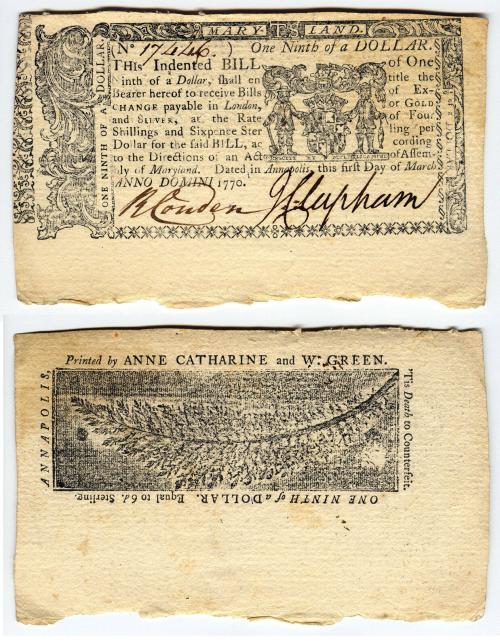 MARY LAND.
ONE NINTH OF A DOLLAR.
(No 17446.) One Ninth of a DOLLAR.
THIS Indented BILL of One
Ninth of a Dollar, shall en title the
Bearer hereof to receive Bills of Ex-
CHANGE payable in London, or GOLD
and SILVER, at the Rate of Four
Shillings and Sixpence Ster ling per
Dollar for the said BILL, ac cording
to the Directions of an Act of Assem-
bly of Maryland. Dated in Annapolis, this first Day of March
ANNO DOMINI 1770.
R Couden J Clapham
Printed by ANNE CATHARINE and W. GREEN.
ANNAPOLIS.
'Tis Death to Counterfeit.
ONE NINTH of a DOLLAR. Equal to 6d. Sterling.